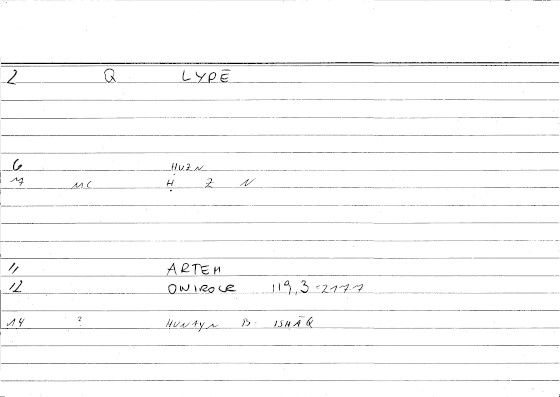 2 Q LYPĒ
6 ḤUZN
7 MC Ḥ Z N
11 ARTEM
12 ONIROCR 119,3
14 ? HUNAYN B. ISHĀQ